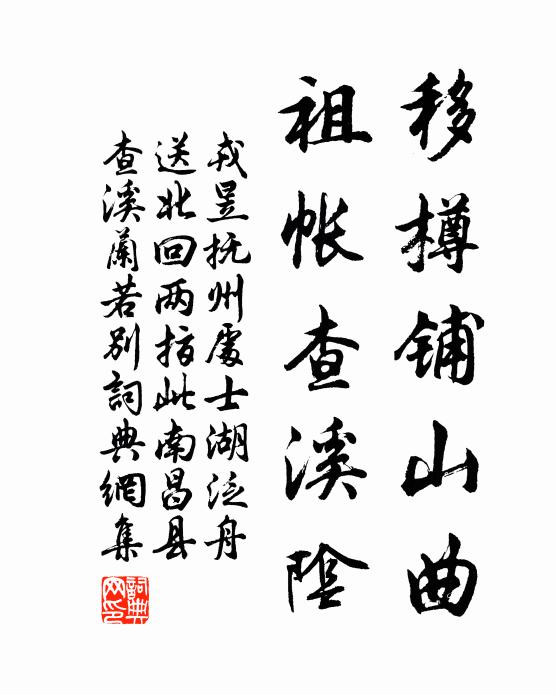 移樽铺山曲
祖帐查溪阴
戎昱抚州处士湖泛舟
送北回两指此南昌县
查溪蘭若别詞典網集
詞典網印